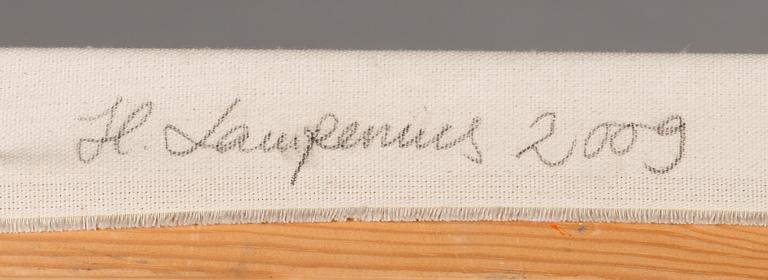 H. Lampenius 2009